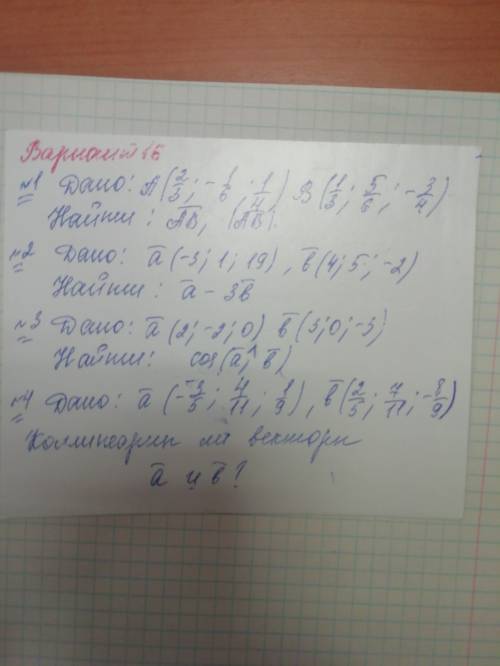 Вариант 16
№1 Дано: А(2/3; -1/6; 1/4) В(1/3; 5/6; -3/4).
Найти: AB, |AB|.
№2 Дано: a(-3; 1; 19), b(4; 5; -2)
Найти: a - 3b
№3 Дано: a(2; -2; 0) b(3; 0; -3)
Найти: cos(a^b)
№4 Дано: a(-3/5; 4/11; 1/9), b(2/5; 7/11; -8/9)
Коллинеарны ли векторы
a и b?